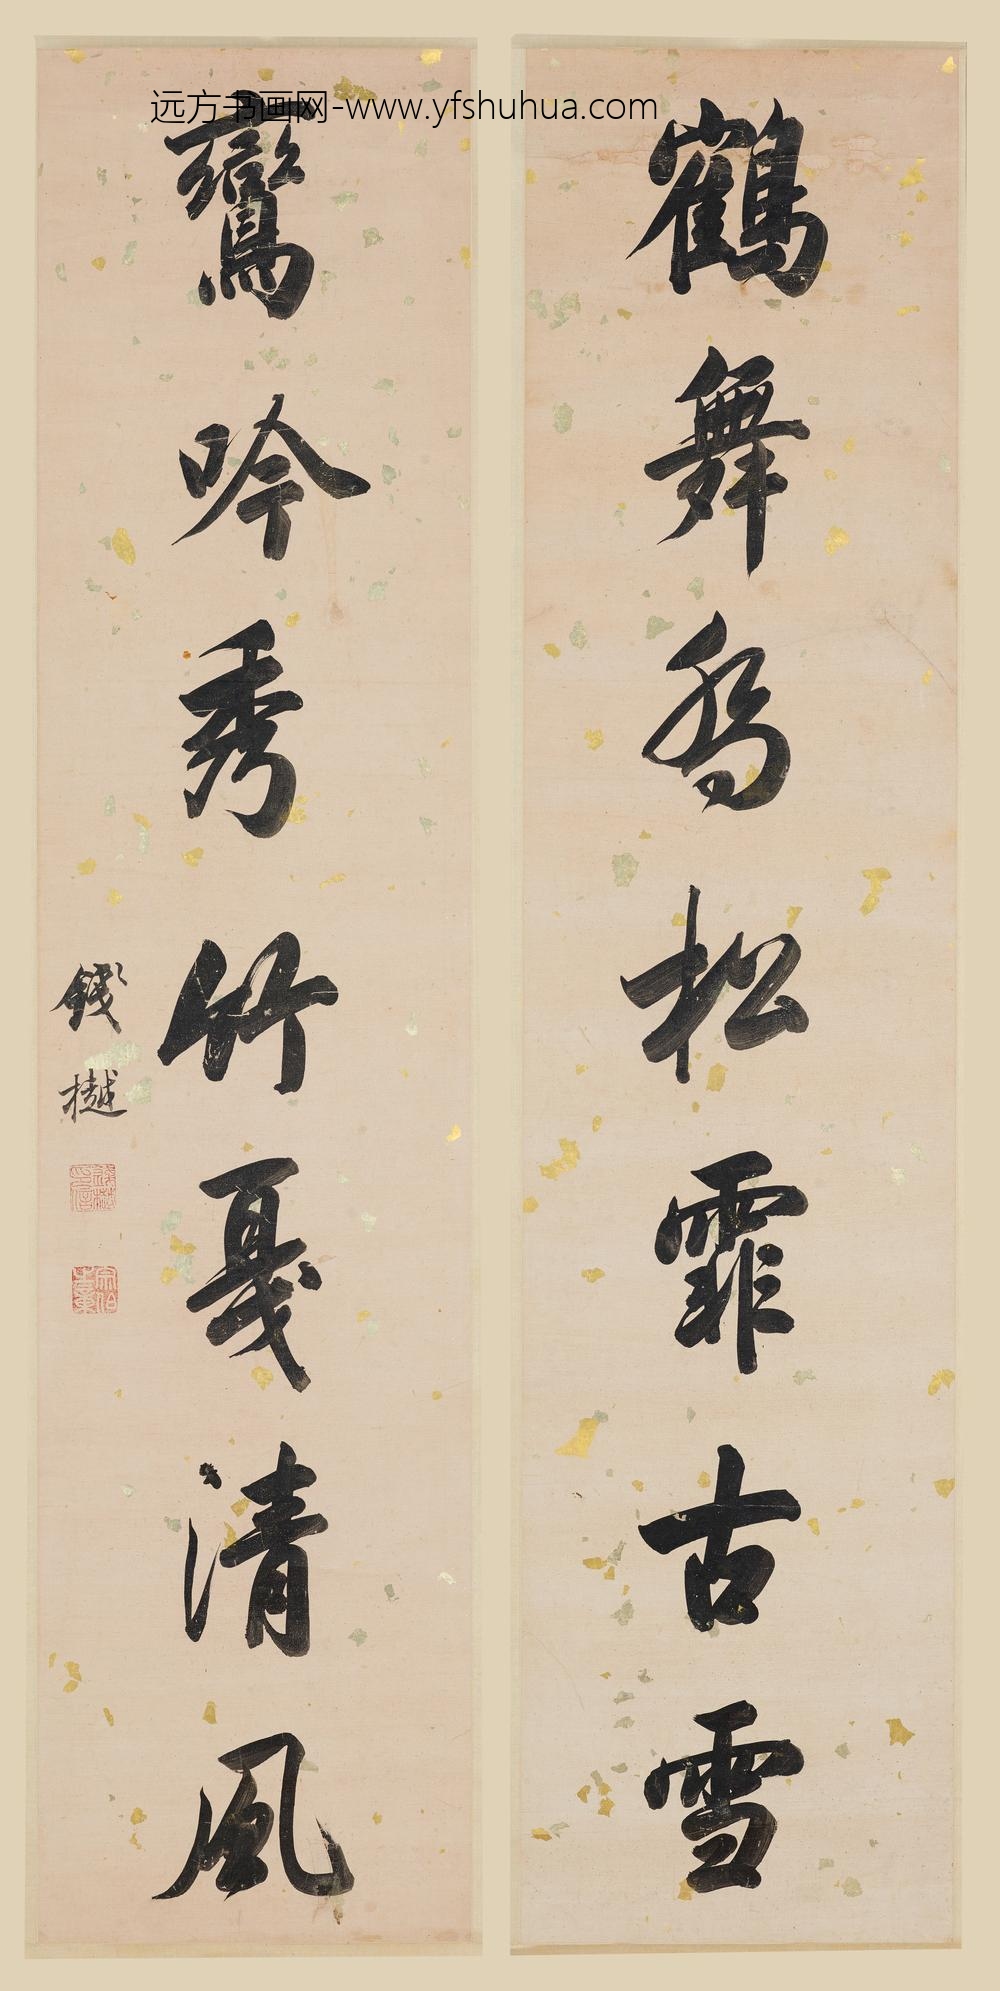 远方书画网-www.yfshuhua.com
鶴舞喬松霏古雪
鸞吟秀竹戞清風
錢樾